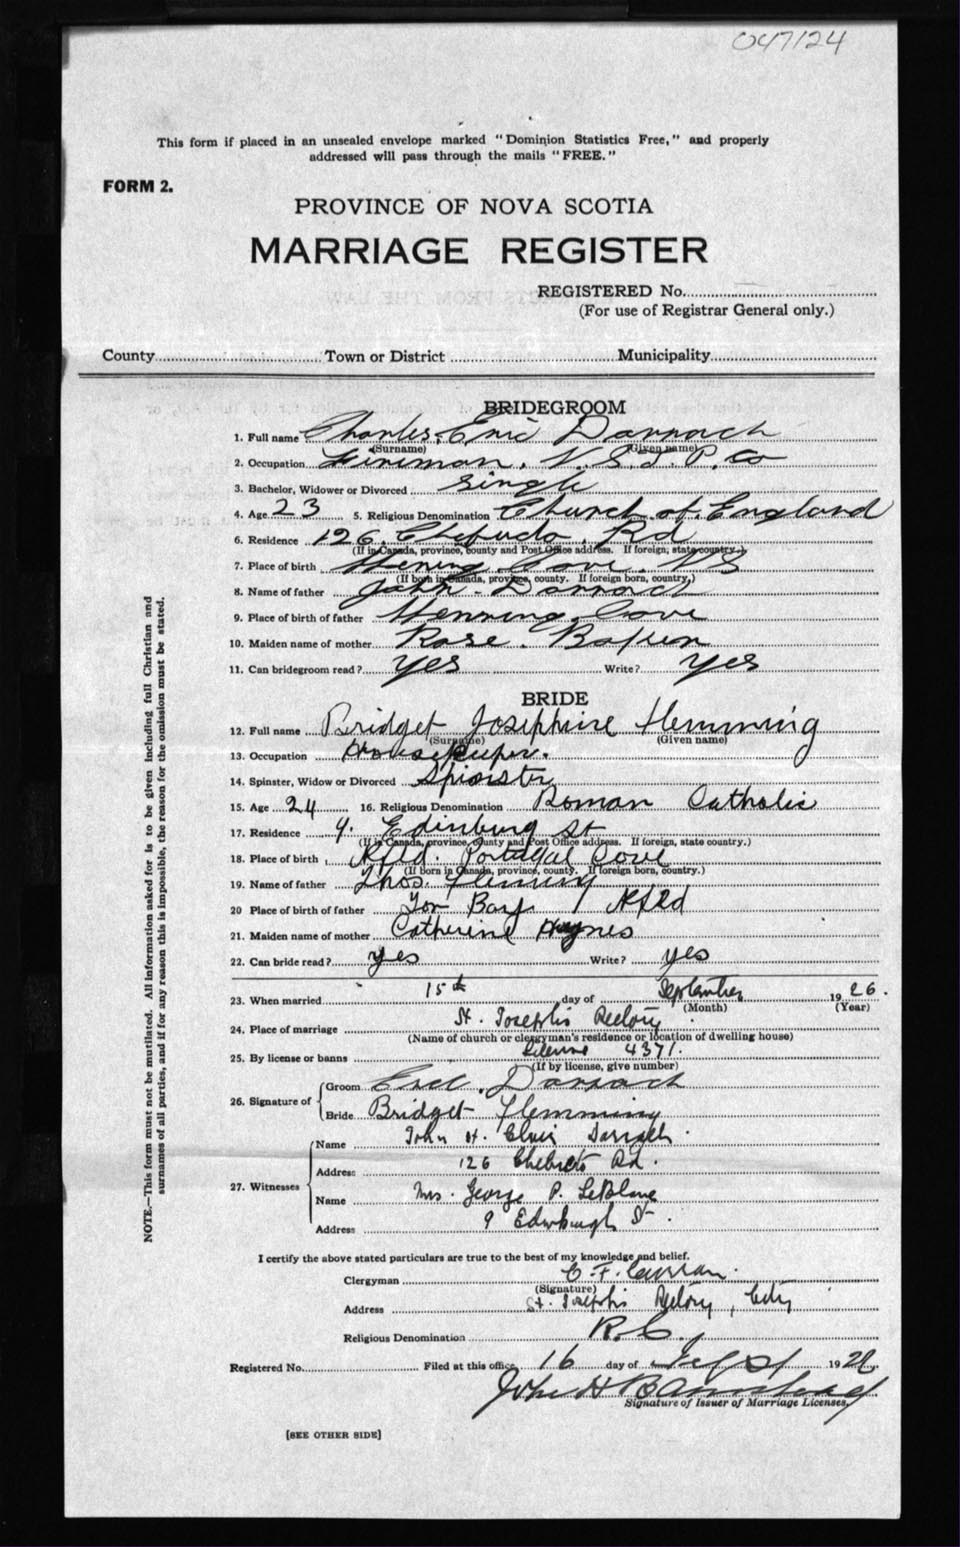 047124
This form if placed in an unsealed envelope marked "Dominion Statistics Free," and properly
addressed will pass through the mails "FREE."
FORM 2.
PROVINCE OF NOVA SCOTIA
MARRIAGE REGISTER
REGISTERED No.
(For use of Registrar General only.)
County Town or District Municipality
BRIDEGROOM
1. Full name Charles Eric Darrach
(Surname) (Given name)
2. Occupation Fireman, N.S.T.P. Co
3. Bachelor, Widower or Divorced single
4. Age 23 5. Religious Denomination Church of England
6. Residence 126 Chebucto Rd
(If in Canada, province, county and Post Office address. If foreign, state country.)
7. Place of birth Herring Cove NS
(If born in Canada, province, county. If foreign born, country.)
8. Name of father John Darrach
9. Place of birth of father Herring Cove
10. Maiden name of mother Rose
11. Can bridegroom read? yes Write? yes
BRIDE
12. Full name Bridget Josephine Flemming
(Surname) (Given name)
13. Occupation Housekeeper.
14. Spinster, Widow or Divorced Spinster
15. Age 24 16. Religious Denomination Roman Catholic
17. Residence 9. Edinburg St
(If in Canada, province, county and Post Office address. If foreign, state country.)
18. Place of birth Nfld. Portugal Cove
(If born in Canada, province, county. If foreign born, country.)
19. Name of father Thos. Fleming
20 Place of birth of father Tor Bay Nfld
21. Maiden name of mother Catherine Haynes
22. Can bride read? yes Write? yes
23. When married 15th day of September 1926.
(Month) (Year)
24. Place of marriage St. Joseph's Rectory
(Name of church or clergyman's residence or location of dwelling house)
25. By license or banns License 4371.
(If by license, give number)
26. Signature of Groom Eric Darrach
Bride Bridget Flemming
27. Witnesses Name John H. Darrach
Address 126 Chebucto Rd.
Name Mrs. George P. LeBlanc
Address 9 Edinburgh St.
I certify the above stated particulars are true to the best of my knowledge and belief.
Clergyman C. F. Curran.
(Signature)
Address St. Joseph's Rectory, City
Religious Denomination R.C.
Registered No. Filed at this office 16 day of Sept 1926
John H Barnstead
Signature of Issuer of Marriage Licenses.
[SEE OTHER SIDE]
NOTE.—This form must not be mutilated. All information asked for is to be given including full Christian and
surnames of all parties, and if for any reason this is impossible, the reason for the omission must be stated.